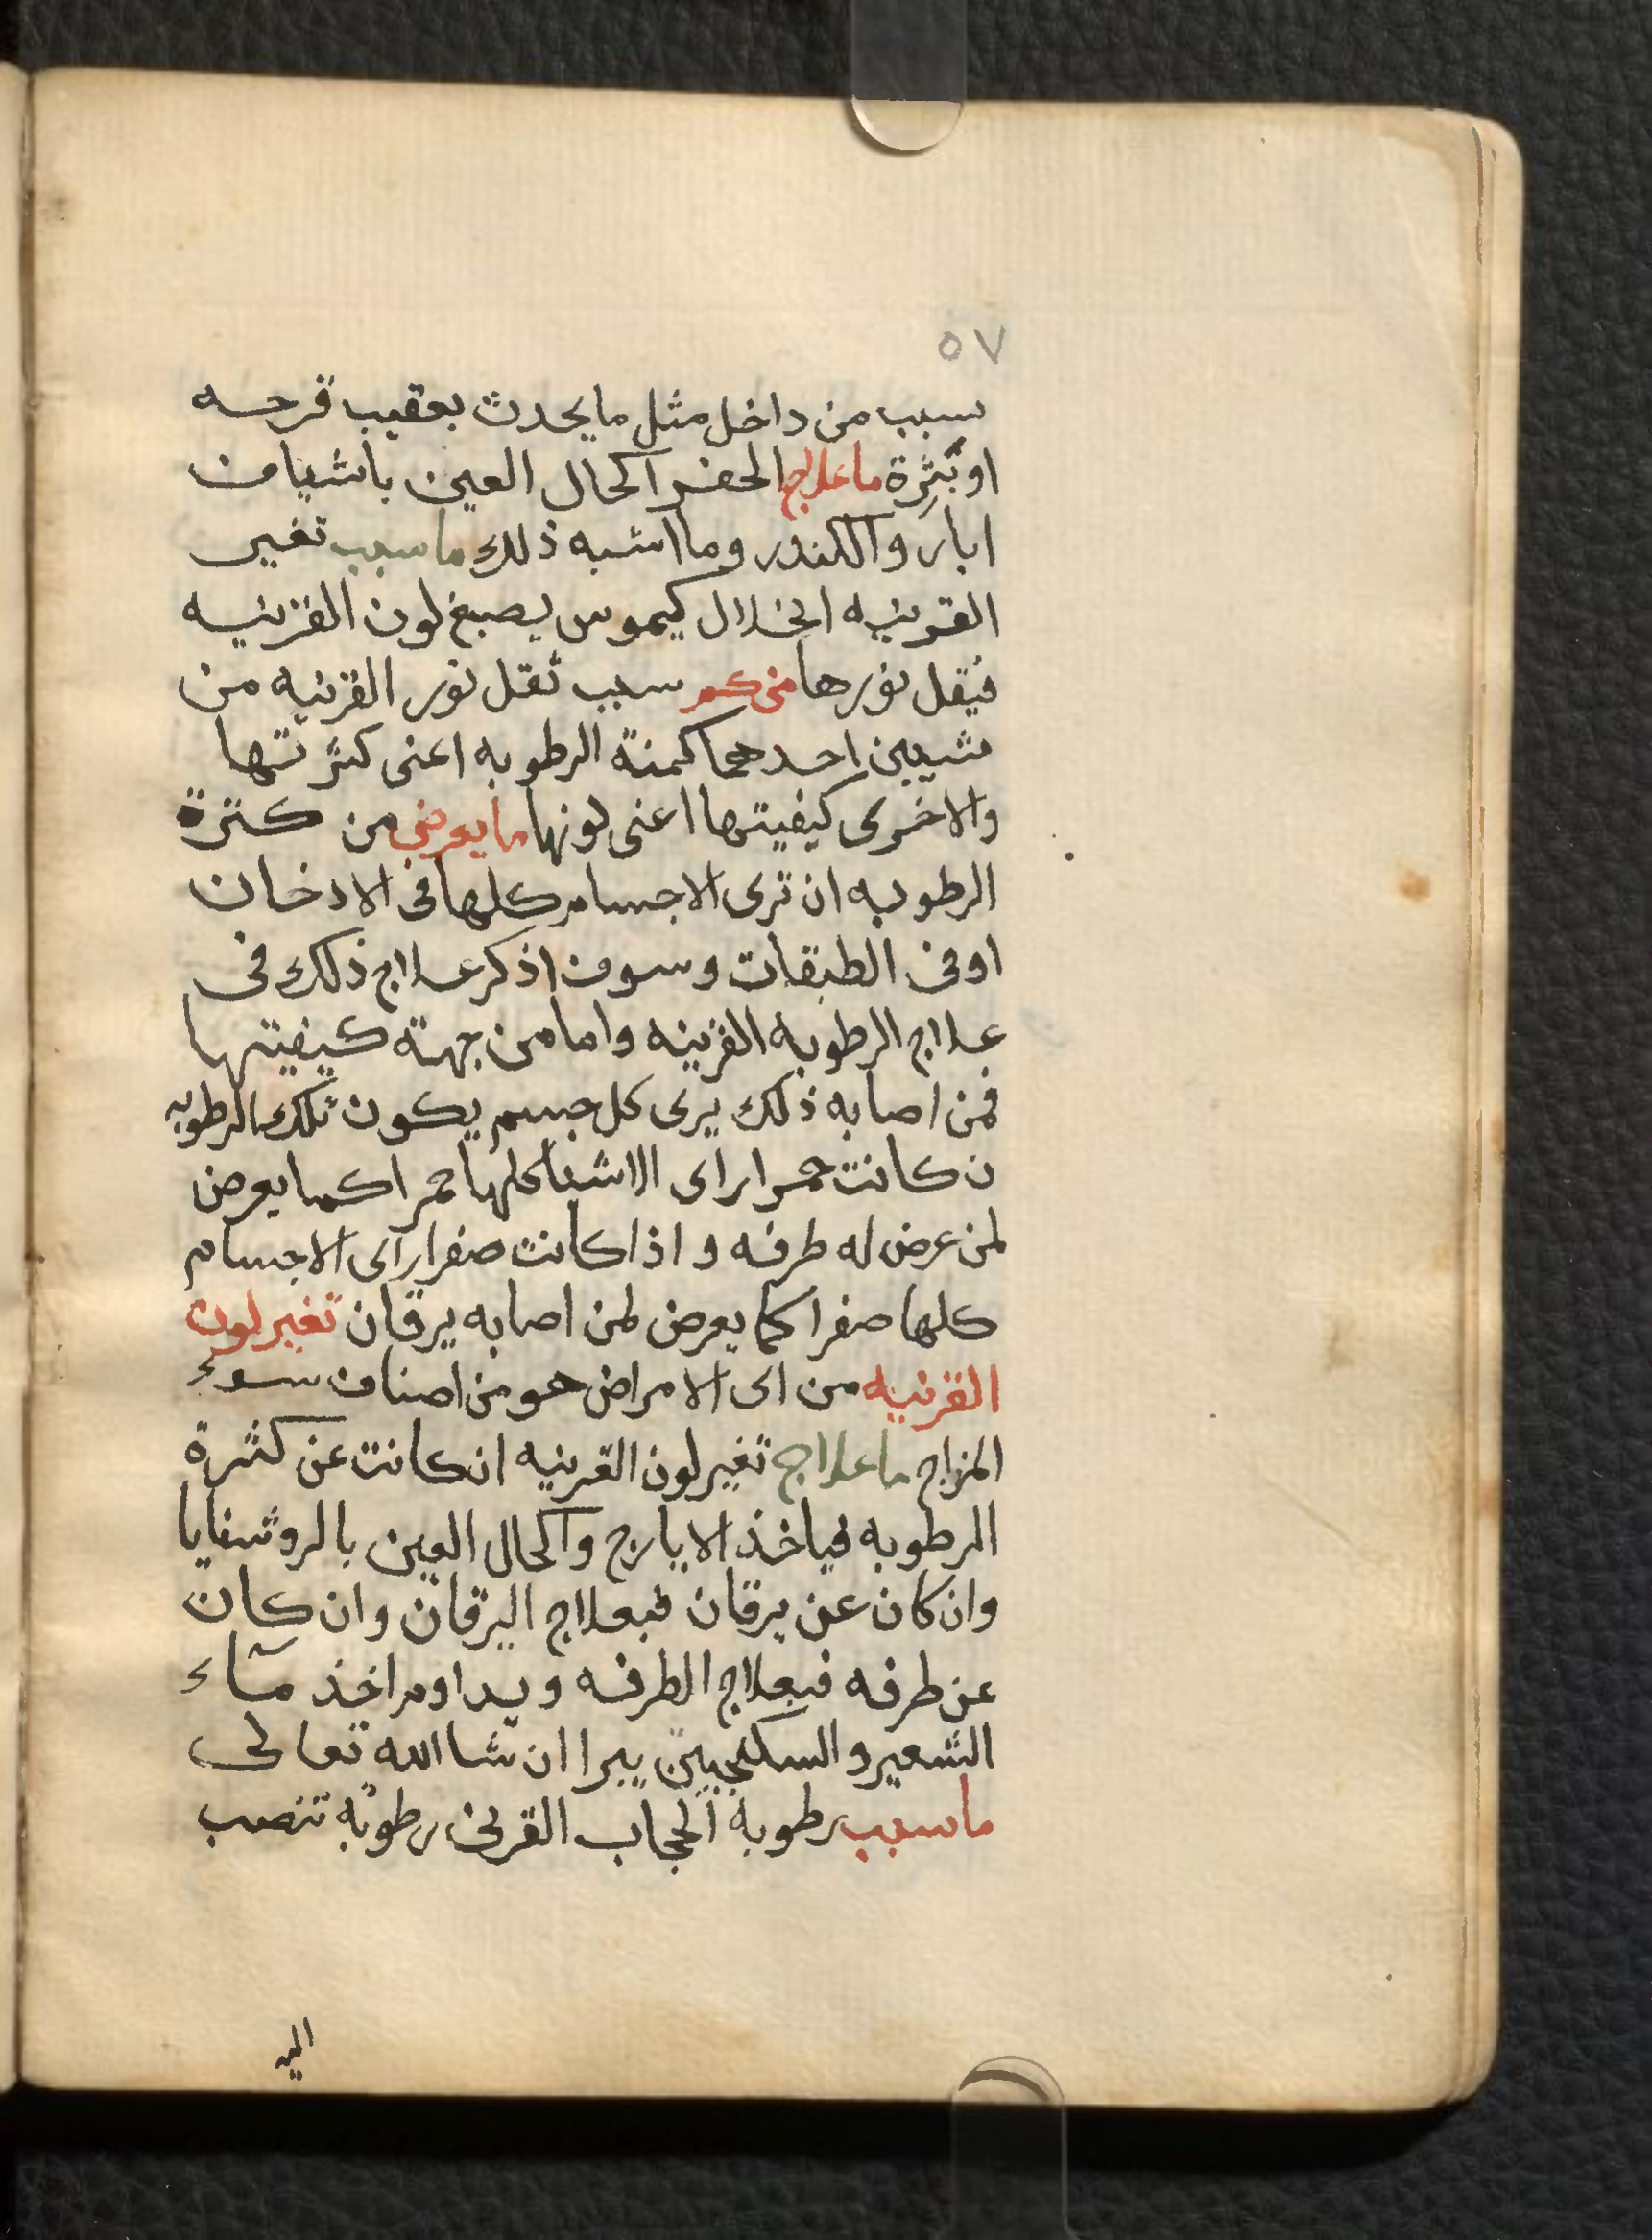 ٥٧
سبب من داخل مثل ما يحدث بعقيب قرحه
او بثرة ما علاج الحفر اكحال العين باشياف
ابار والكندر وما اشبه ذلك ما سبب تغير
القرنيه انحلال كيموس يصبغ لون القرنيه
فيقل نورها من كم سبب ثقل نور القرنيه من
شيين احدهما كمنة الرطوبه اعنى كثرتها
والاخرى كيفيتها اعنى لونها ما يعرض من كثرة
الرطوبه ان ترى الاجسام كلها فى الادخان
او فى الطبقات وسوف اذكر علاج ذلك فى
علاج الرطوبه القرنيه واما من جهة كيفيتها
فمن اصابه ذلك يرى كل جسم يكون تلك الرطوبه
ن كانت حمرا راى الاشيا كلها حمرا كما يعرض
لمن عرض له طرفه واذا كانت صفرا راى الاجسام
كلها صفرا كما يعرض لمن اصابه يرقان تغير لون
القرنيه من اى الامراض هو من اصناف سوء
المزاج ما علاج تغير لون القرنيه ان كانت عن كثرة
الرطوبه فياخذ الايارج واكحال العين بالروشنايا
وان كان عن يرقان فبعلاج اليرقان وان كان
عن طرفه فبعلاج الطرفه ويداوم اخذ مآء
الشعير والسكنجبين يبرا ان شا الله تعالى
ما سبب رطوبة الحجاب القرنى رطوبه تنصب
اليه